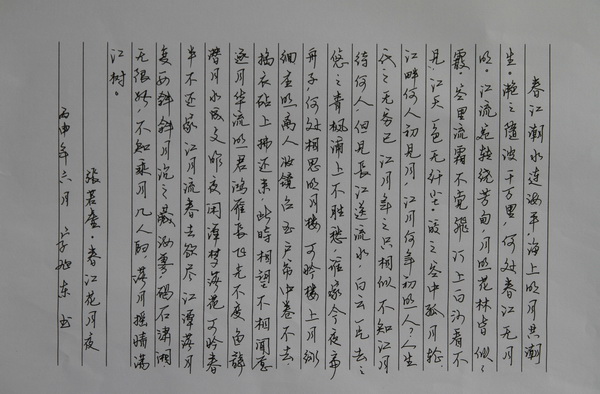 春江潮水连海平，海上明月共潮
生。滟々随波千万里，何处春江无月
明。江流宛转绕芳甸，月照花林皆似
霰。空里流霜不觉飞，汀上白沙看不
见。江天一色无纤尘。皎々空中孤月轮。
江畔何人初见月，江月何年初照人？人生
代々无穷已，江月年年只相似。不知江月
待何人，但见長江送流水，白云一片去
悠々，青枫浦上不胜愁。谁家今夜扁
舟子，何处相思明月楼。可怜楼上月徘
徊，应照离人妆镜台。玉户帘中卷不去
捣衣砧上拂还来，此时相望不相闻，愿
逐月华流照君。鸿雁長飞光不度，鱼龍
潜月水成文，昨夜闲潭梦落花，可怜春
半不还家，江月流春去欲尽，江潭落月
复西斜，斜月沉々藏海雾，碣石潇湘
无限路，不知乘月几人归，落月摇情满
江树。
张若虚·春江花月夜
丙申年六月 东书